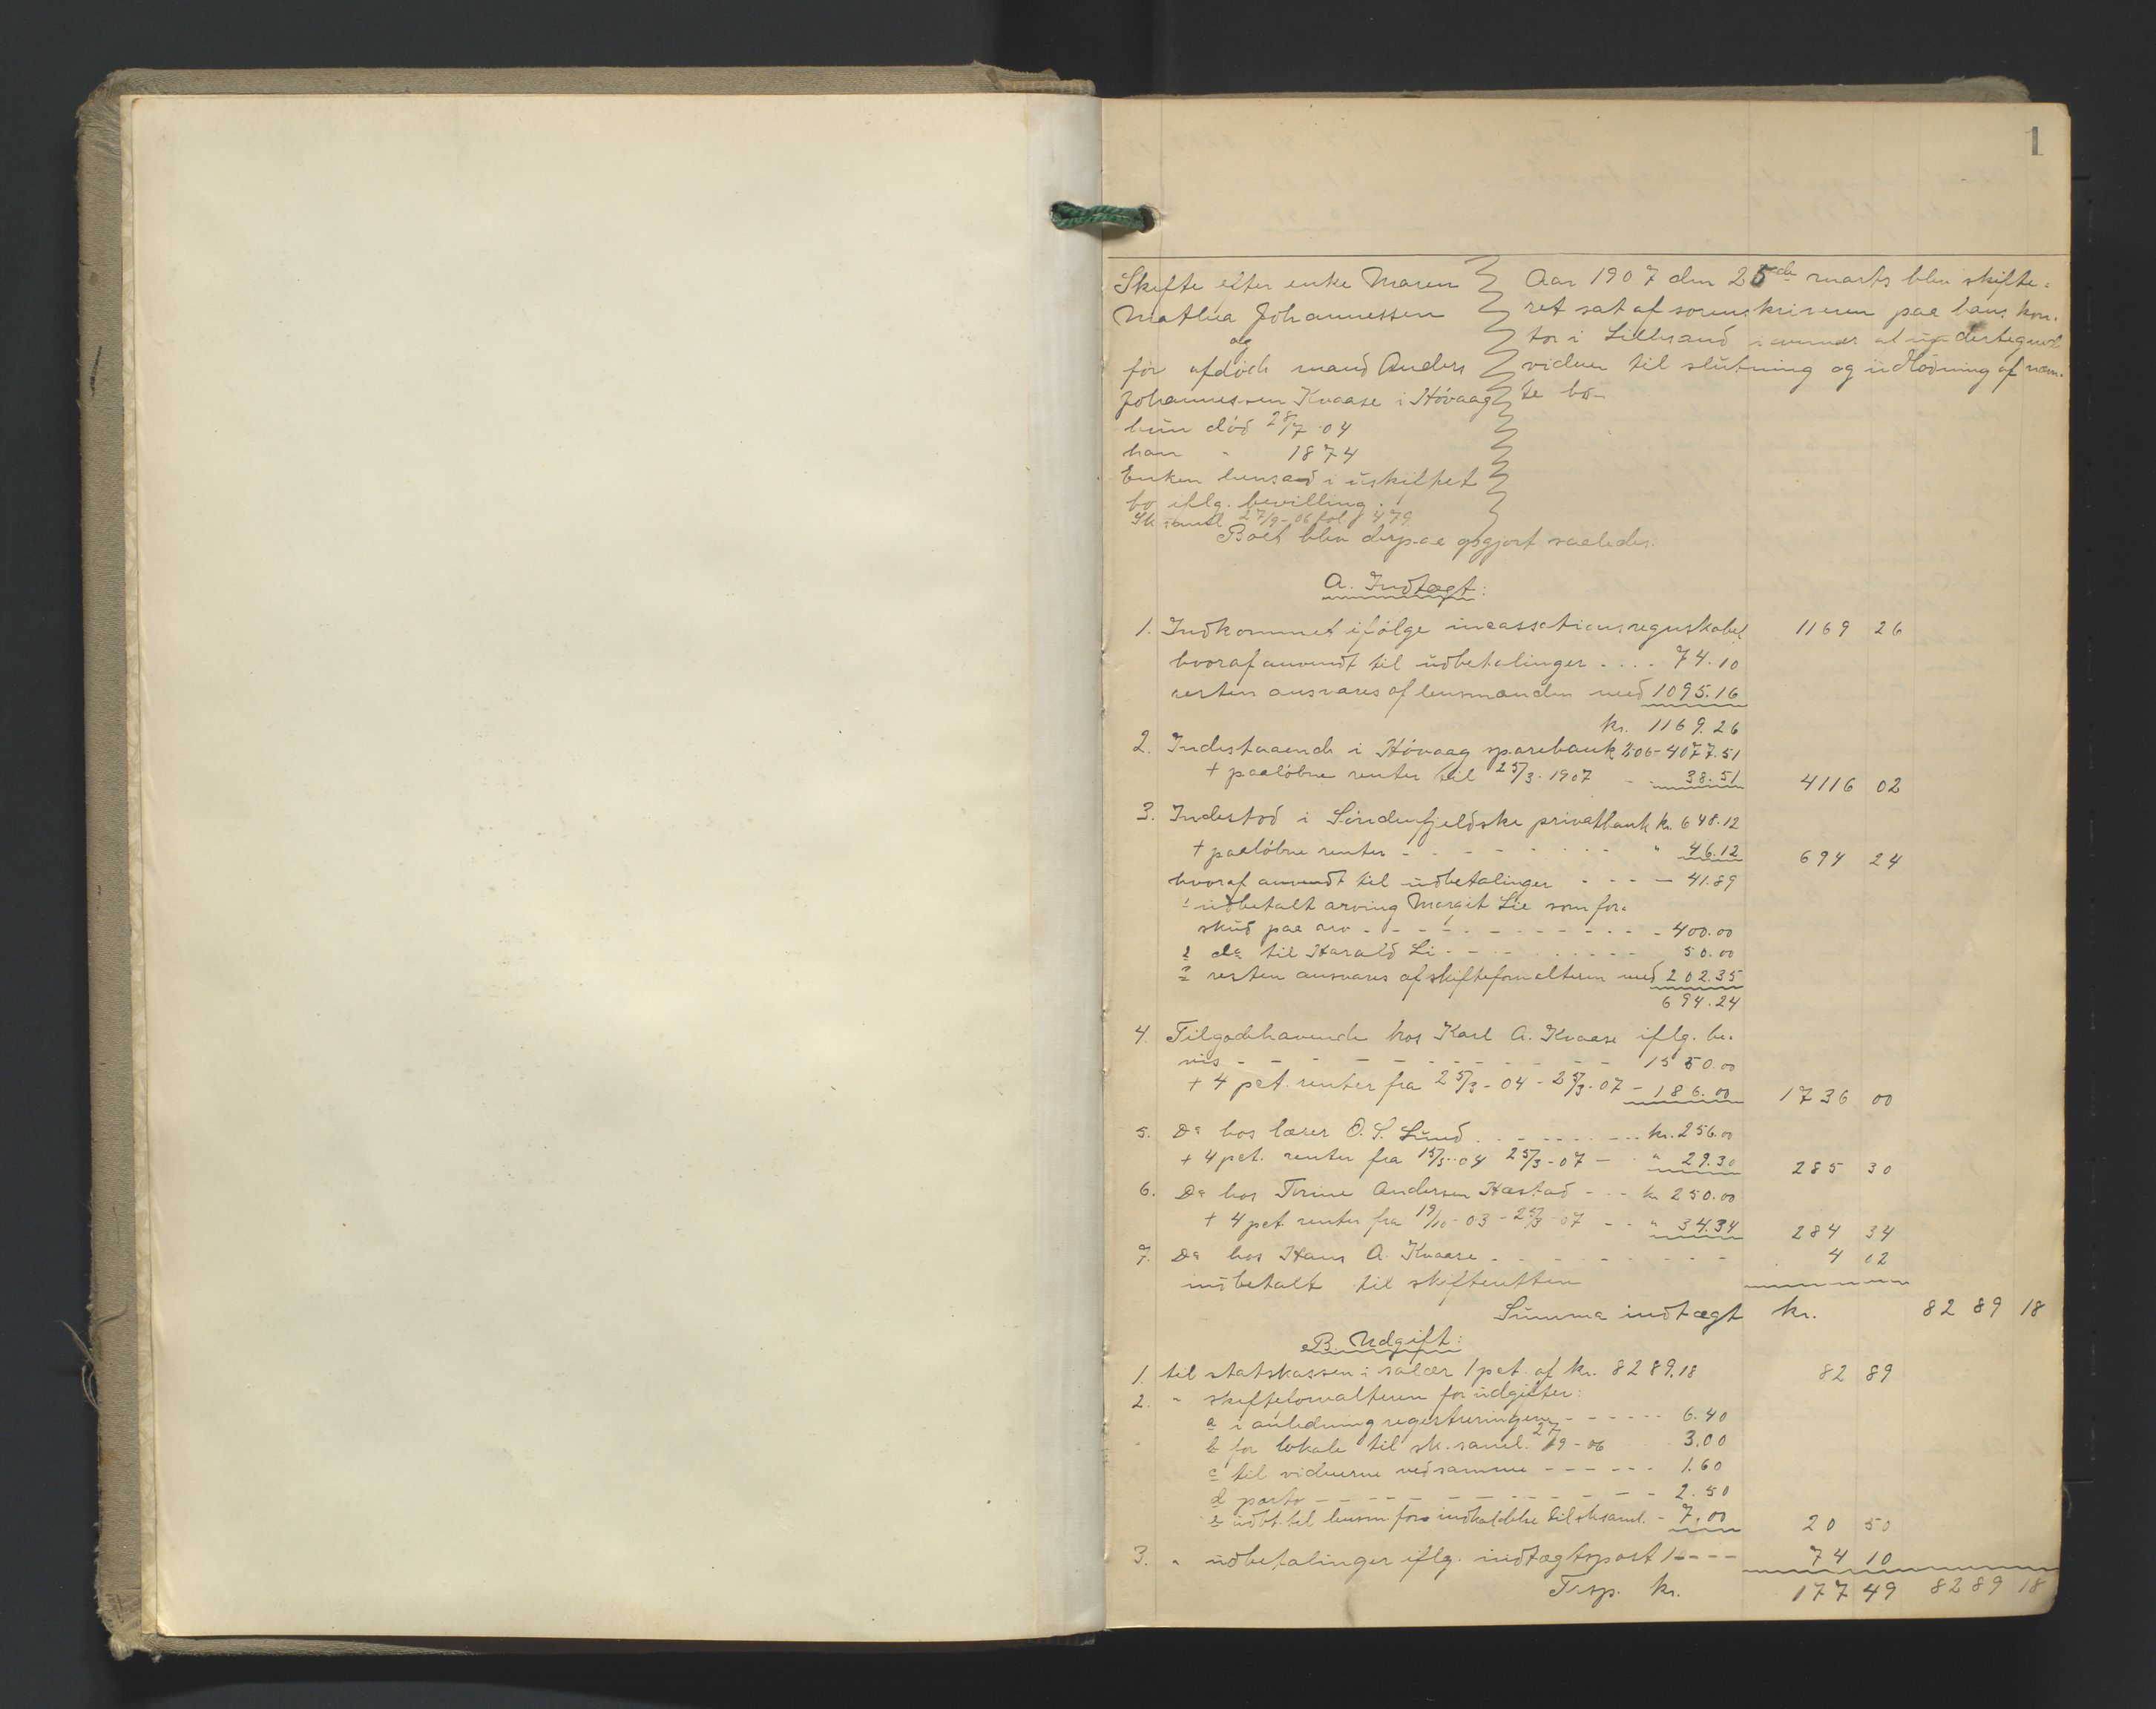 1
Skifte efter enke Maren
Mathea Johannessen
og
før afdøde mand Anders
Johannessen Kvaase i Høvaag
hun død 28/7-04
han - 1874
Enken hensad i uskiftet
bo iflg. bevilling.
Sk. saml. 27/9-06 fol 479
Aar 1907 den 25de marts blev skifte-
ret sat af sorenskriveren paa hans kon-
tor i Lillesand i overvær af undertegnede
vidner til slutning og udlodning af nævn-
te bo-
Boet blev derpaa opgjort saaledes:
A. Indtægt:
1. Indkommet ifølge incassationsregnskabet 1169 26
hvoraf anvendt til udbetalinger .... 74.10
resten ansvares af lensmanden med 1095.16
kr. 1169.26
2. Indestaaende i Høvaag sparebank 4077.51
+ paaløbne renter til 25/3-1907 - - 38.51 4116 02
3. Indestod i Søndenfjeldske privatbank kr. 648.12
+ paaløbne renter - - - - - - - " 46.12 694 24
hvoraf anvendt til udbetalinger - - - - 41.89
1 udbetalt arving Margit Lie som for-
skud paa arv - - - - - - - - - - 400.00
2 do til Harald Li - - - - - - - 50.00
3 resten ansvares af skifteforvalteren med 202.35
694.24
4. Tilgodehavende hos Karl A. Kvaase iflg. be-
vis - - - - - - - - - - - 1550.00
+ 4 pct. renter fra 25/3-04 - 25/3-07 - 186.00 1736 00
5. Do hos lærer O. S. Lund . - - - - - ... kr. 256.00
+ 4 pct. renter fra 15/5-04 25/3-07 - " 29.30 285 30
6. Do hos Terine Andersen Hæstad - - - kr 250.00
+ 4 pct renter fra 19/10-03 - 25/3-07 - - " 34.34 284 34
7. Do hos Hans A. Kvaase - - - - - - - - 4 02
indbetalt til skifteretten
Summa indtægt kr. 8289 18
B. Udgift:
1. til statskassen i salær 1 pct. af kr. 8289.18 82 89
2. " skifteforvalteren for udgifter:
a i anledning registreringen - - - - - - 6.40
b for lokale til sk. saml. 27/9-06 3.00
c til vidnerne ved samme - - - - - - 1.60
d porto - - - - - - - - - - - - 2.50
e udbt. til lensm. for indkaldelse til sk. saml. - 7.00 20 50
3. " udbetalinger iflg. indtægtspost 1 - - - - 74 10
Trsp. kr. 177 49 8289 18